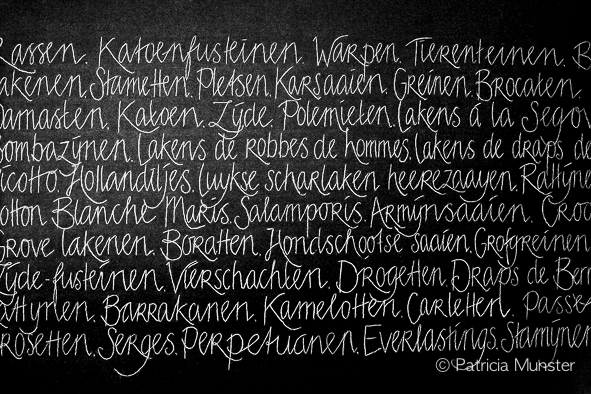 Rassen. Katoenfusteinen. Warpen. Tierenteinen. B
akenen. Stametten. Pletsen. Karsaaien. Greinen. Brocaten.
Damasten. Katoen. Zijde. Polemieten. Lakens à la Segov
Bombazijnen. Lakens de robbes de hommes. Lakens de draps de
icotto. Hollandiljes. Luykse scharlaken heerezaayen. Rattijne
otton. Blanche Maris. Salamporis. Armijnsaaien. Croc
Grove lakenen. Boratten. Hondschootse saaien. Grofgreinen
Zijde-fusteinen. Vierschachten. Drogetten. Draps de Berr
attynen. Barrakanen. Kamelotten. Carletten. Passe
rosetten. Serges. Perpetuanen. Everlastings. Stamijnen
© Patricia Munster